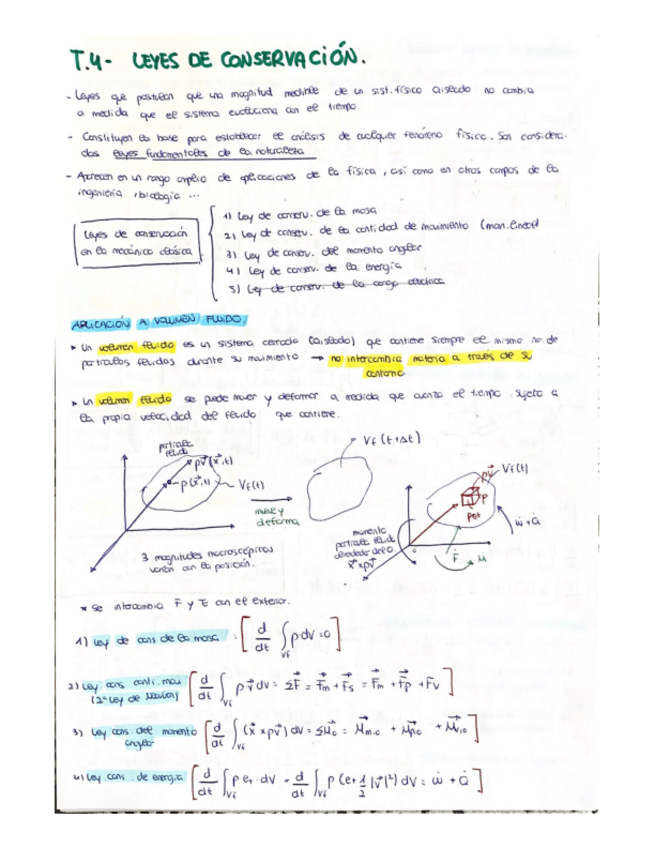 T.4- LEYES DE CONSERVACIÓN.
- Leyes que postulan que una magnitud medible de un sist. físico aislado no cambia
a medida que el sistema evoluciona con el tiempo.
- Constituyen la base para establecer el análisis de cualquier fenómeno físico. Son considera-
das leyes fundamentales de la naturaleza
- Aparecen en un rango amplio de aplicaciones de la física, así como en otros campos de la
ingeniería, biología ...
Leyes de conservación
en la mecánica clásica
1) Ley de conserv. de la masa
2) Ley de conserv. de la cantidad de movimiento (mom. lineal)
3) Ley de conserv. del momento angular
4) Ley de conserv. de la energía
5) Ley de conserv. de la carga eléctrica
APLICACIÓN A VOLUMEN FLUIDO.
Un volumen fluido es un sistema cerrado (aislado) que contiene siempre el mismo no. de
partículas fluidas durante su movimiento → no intercambia materia a través de su
contorno
Un volumen fluido se puede mover y deformar a medida que avanza el tiempo, sujeto a
la propia velocidad del fluido que contiene.
partícula
fluida
ρv⃗(x⃗,t)
ρ(x⃗,t)
Vf(t)
mueve y
deforma
Vf(t+Δt)
3 magnitudes macroscópicas
varían con la posición.
momento
partícula fluida
alrededor del O
x⃗×ρv⃗
ρv⃗
Vf(t)
ρ
ρet
ẇ+Q̇
F⃗
M
* Se intercambia F y E con el exterior.
1) Ley de cons de la masa : [d/dt ∫Vf ρ dV = 0]
2) Ley cons. canti. mov [d/dt ∫Vf ρ v⃗ dV = ΣF⃗ = F⃗m + F⃗s = F⃗m + F⃗p + F⃗v]
(2ª Ley de Newton)
3) Ley cons. del momento [d/dt ∫Vf (x⃗ × ρv⃗) dV = ΣM⃗o = M⃗m,o + M⃗p,o + M⃗v,o]
angular
4) Ley cons. de energía [d/dt ∫Vf ρ et · dV = d/dt ∫Vf ρ (e + 1/2 |v⃗|²) dV = ẇ + Q̇]